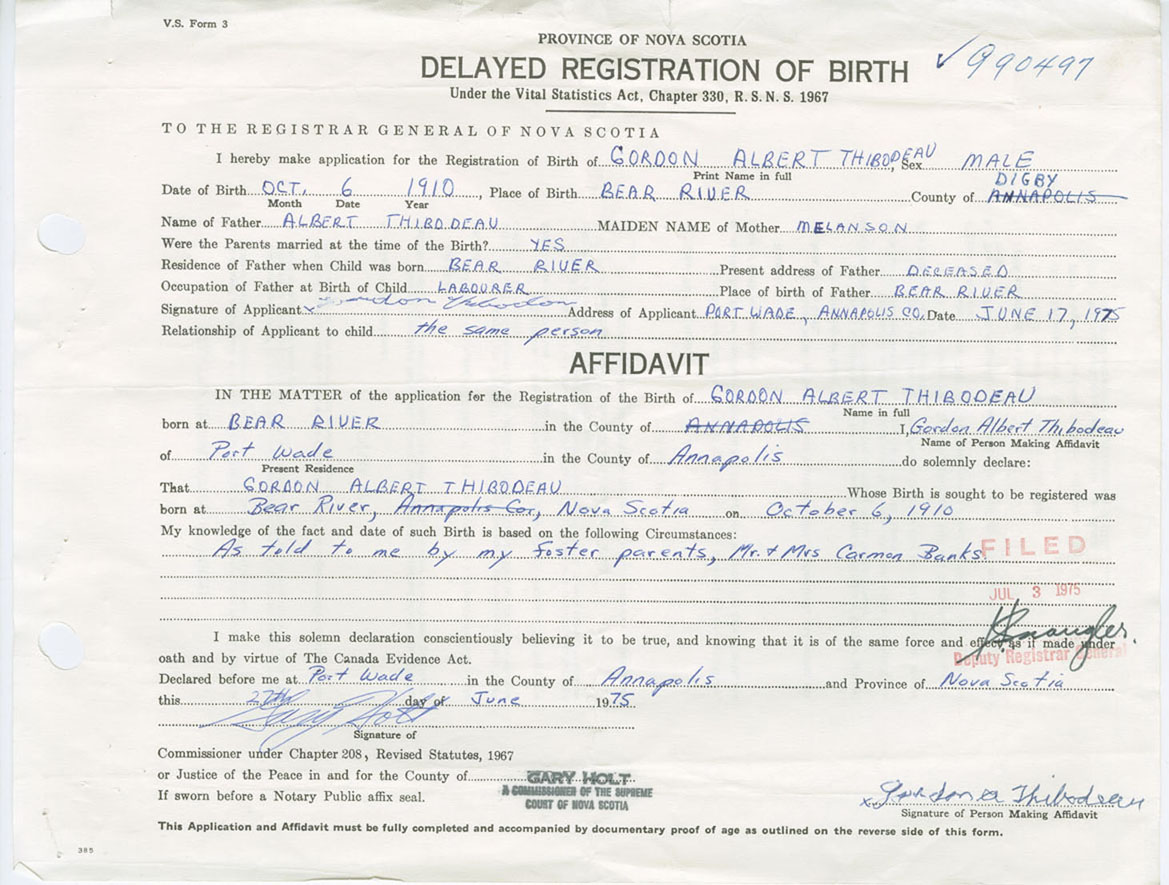 V.S. Form 3
PROVINCE OF NOVA SCOTIA
DELAYED REGISTRATION OF BIRTH ✓990497
Under the Vital Statistics Act, Chapter 330, R.S.N.S. 1967
TO THE REGISTRAR GENERAL OF NOVA SCOTIA
I hereby make application for the Registration of Birth of GORDON ALBERT THIBODEAU, Sex MALE
Print Name in full
DIGBY
Date of Birth OCT. 6 1910, Place of Birth BEAR RIVER County of ANNAPOLIS
Month Date Year
Name of Father ALBERT THIBODEAU MAIDEN NAME of Mother MELANSON
Were the Parents married at the time of the Birth? YES
Residence of Father when Child was born BEAR RIVER Present address of Father DEREASED
Occupation of Father at Birth of Child LABOURER Place of birth of Father BEAR RIVER
Signature of Applicant x Gordon Thibodeau Address of Applicant PORT WADE, ANNAPOLIS CO. Date JUNE 17, 1975
Relationship of Applicant to child the same person
AFFIDAVIT
IN THE MATTER of the application for the Registration of the Birth of GORDON ALBERT THIBODEAU
Name in full
born at BEAR RIVER in the County of ANNAPOLIS I, Gordon Albert Thibodeau
Name of Person Making Affidavit
of Port Wade in the County of Annapolis do solemnly declare:
Present Residence
That GORDON ALBERT THIBODEAU Whose Birth is sought to be registered was
born at Bear River, Annapolis Co., Nova Scotia on October 6, 1910
My knowledge of the fact and date of such Birth is based on the following Circumstances:
As told to me by my foster parents, Mr. & Mrs Carmon Banks.
FILED
JUL 3 1975
I make this solemn declaration conscientiously believing it to be true, and knowing that it is of the same force and effect as if made under
oath and by virtue of The Canada Evidence Act.
Deputy Registrar General
Declared before me at Port Wade in the County of Annapolis and Province of Nova Scotia
this 27th day of June 1975
Gary Holt
Signature of
Commissioner under Chapter 208, Revised Statutes, 1967
or Justice of the Peace in and for the County of GARY HOLT
A COMMISSIONER OF THE SUPREME
COURT OF NOVA SCOTIA
If sworn before a Notary Public affix seal.
x Gordon A Thibodeau
Signature of Person Making Affidavit
This Application and Affidavit must be fully completed and accompanied by documentary proof of age as outlined on the reverse side of this form.
385